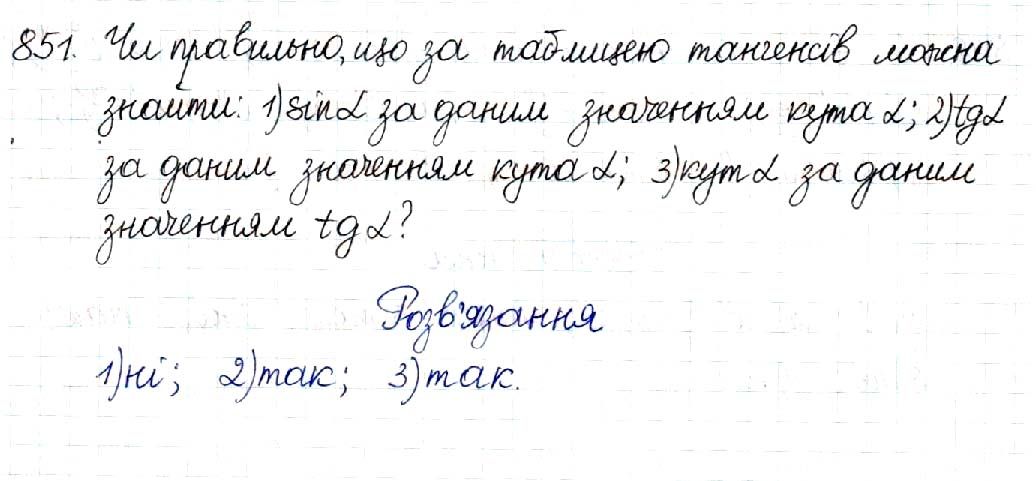 851. Чи правильно, що за таблицею тангенсів можна
знайти: 1) sinα за даним значенням кута α; 2) tgα
за даним значенням кута α; 3) кут α за даним
значенням tgα?
Розв'язання
1) ні; 2) так; 3) так.